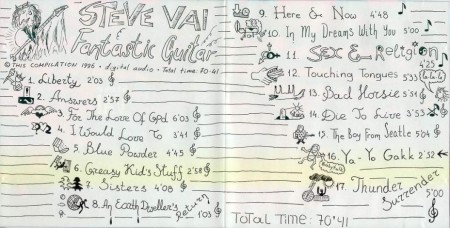 STEVE VAI
Fantastic Guitar
© THIS COMPILATION 1996 • digital audio • Total time: 70'41
1. Liberty 2'03
2. Answers 2'57
3. For The Love Of God 6'03
4. I Would Love To 3'41
5. Blue Powder 4'45
6. Greasy Kid's Stuff 2'58
7. Sisters 4'08
8. An Earth Dweller's Return 1'03
9. Here & Now 4'48
10. In My Dreams With You 5'00
11. SEX & Religion 4'25
12. Touching Tongues 5'33
la la la
13. Bad Horsie 5'51
14. Die To Live 3'53
15. The Boy From Seattle 5'04
16. Ya-Yo Gakk 2'52
17. Thunder Surrender 5'00
TOTAL TIME: 70'41